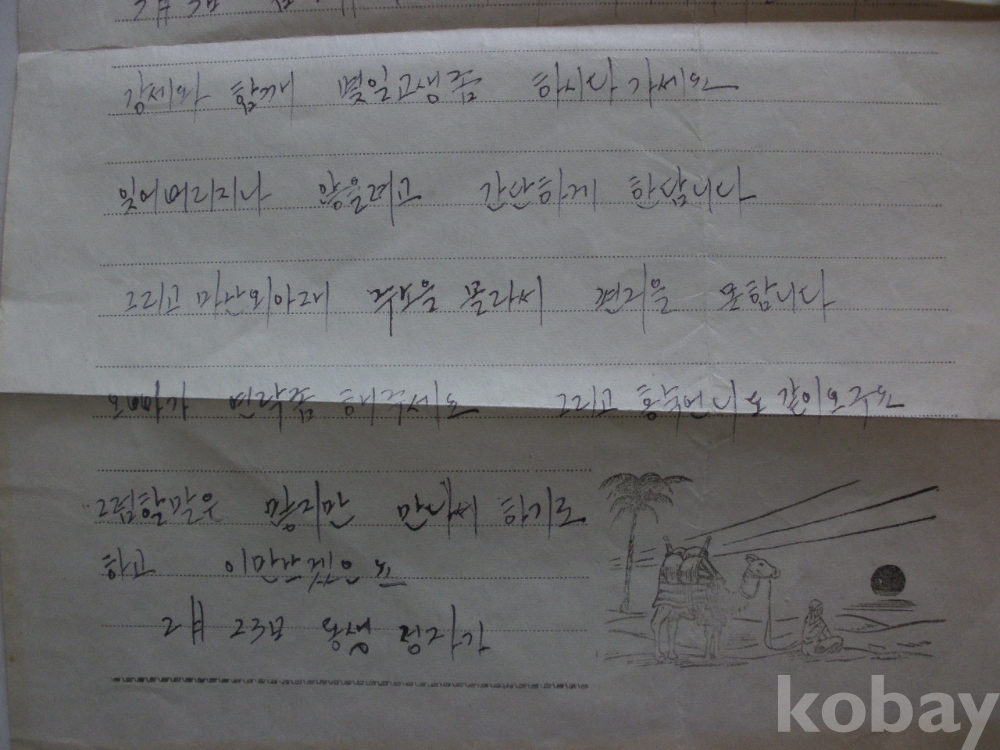 강제와 함께 몇일고생좀 하시다 가세요
잊어버리지나 않을려고 간단하게 한담니다
그리고 마산외아래 주소을 몰라서 편지을 못합니다
오빠가 연락좀 해주세요 그리고 홍숙언니도 같이오구요
그럼할말은 많지만 만나서 하기로
하고 이만
2月 23日 동생 정자가
kobay